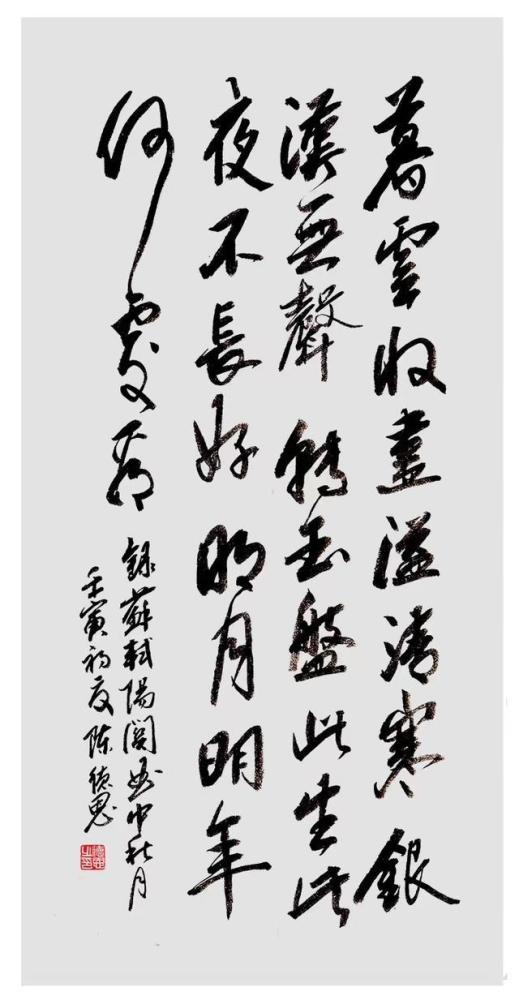 暮雲收盡溢清寒銀
漢無聲轉玉盤此生此
夜不長好明月明年
何處看
録蘇軾陽關曲中秋月
壬寅初夏陈德